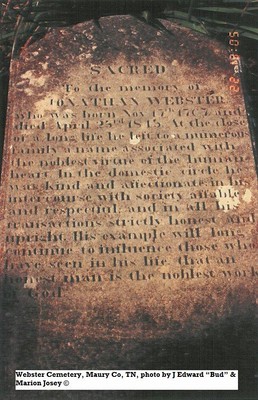 SACRED
To the memory of
JONATHAN WEBSTER
who was born Nov. 17th 1767 and
died April 25st 1845. At the close
of a long life he left to a numerous
family a name associated with
the noblest virtue of the human
heart. In the domestic circle he
was kind and affectionate in his
intercourse with society affable
and respectful and in all his
transactions strictly honest and
upright. His example will long
continue to influence those who
have seen in his life, that an
honest man is the noblest work
God
Webster Cemetery, Maury Co, TN, photo by J Edward “Bud” &
Marion Josey ©